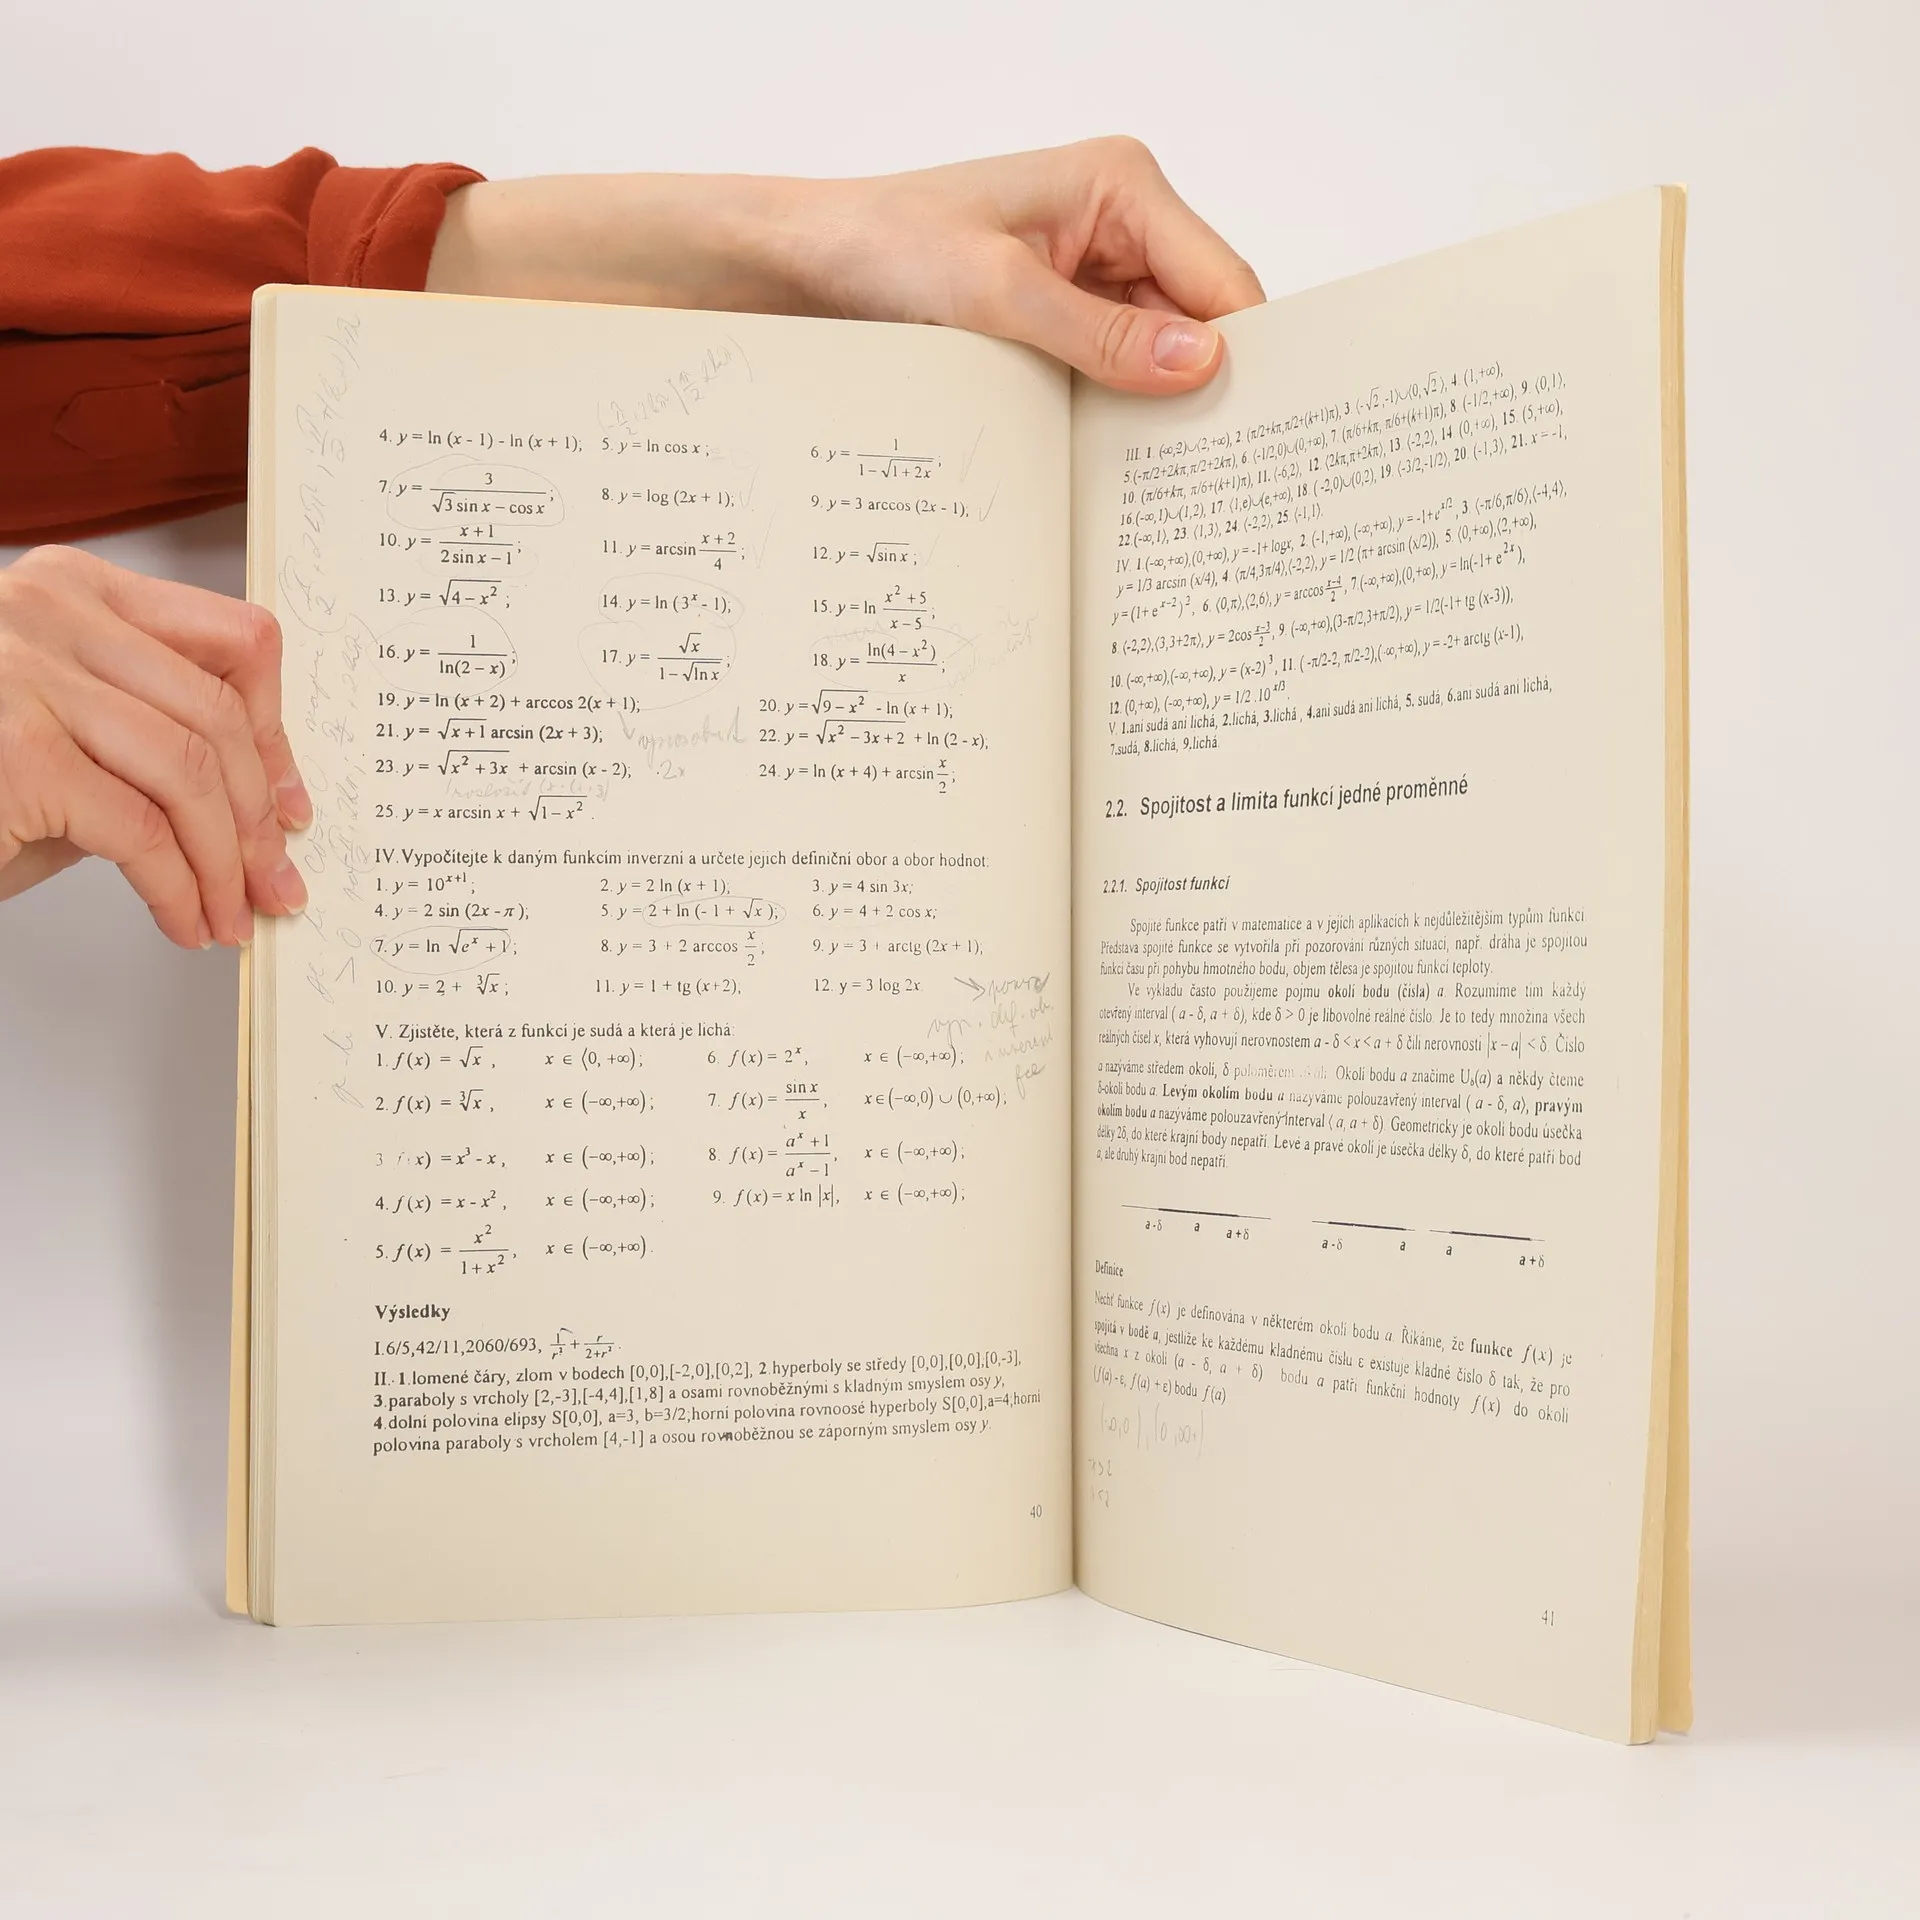 4. y = ln (x - 1) - ln (x + 1); 5. y = ln cos x ; 6. y = 1/(1 − √(1 + 2x)) ;
7. y = 3/(√3 sin x − cos x) ; 8. y = log (2x + 1); 9. y = 3 arccos (2x - 1);
10. y = (x + 1)/(2 sin x − 1) ; 11. y = arcsin (x + 2)/4 ; 12. y = √(sin x) ;
13. y = √(4 − x²) ; 14. y = ln (3ˣ - 1); 15. y = ln (x² + 5)/(x − 5) ;
16. y = 1/ln(2 − x) ; 17. y = √x/(1 − √(ln x)) ; 18. y = ln(4 − x²)/x ;
19. y = ln (x + 2) + arccos 2(x + 1); 20. y = √(9 − x²) - ln (x + 1);
21. y = √(x + 1) arcsin (2x + 3); 22. y = √(x² − 3x + 2) + ln (2 - x);
23. y = √(x² + 3x) + arcsin (x - 2); 24. y = ln (x + 4) + arcsin x/2 ;
25. y = x arcsin x + √(1 − x²) .
IV. Vypočítejte k daným funkcím inverzní a určete jejich definiční obor a obor hodnot:
1. y = 10ˣ⁺¹ ; 2. y = 2 ln (x + 1); 3. y = 4 sin 3x;
4. y = 2 sin (2x - π); 5. y = 2 + ln (- 1 + √x ); 6. y = 4 + 2 cos x;
7. y = ln √(eˣ + 1) ; 8. y = 3 + 2 arccos x/2 ; 9. y = 3 + arctg (2x + 1);
10. y = 2 + ∛x ; 11. y = 1 + tg (x+2); 12. y = 3 log 2x.
V. Zjistěte, která z funkcí je sudá a která je lichá:
1. f(x) = √x , x ∈ ⟨0, +∞); 6. f(x) = 2ˣ, x ∈ (−∞,+∞);
2. f(x) = ∛x , x ∈ (−∞,+∞); 7. f(x) = sin x/x , x∈(−∞,0) ∪ (0,+∞);
3. f(x) = x³ - x, x ∈ (−∞,+∞); 8. f(x) = (aˣ + 1)/(aˣ − 1) , x ∈ (−∞,+∞);
4. f(x) = x - x² , x ∈ (−∞,+∞); 9. f(x) = x ln |x|, x ∈ (−∞,+∞);
5. f(x) = x²/(1 + x²) , x ∈ (−∞,+∞).
Výsledky
I.6/5,42/11,2060/693, 1/r² + r/(2+r²) .
II. 1.lomené čáry, zlom v bodech [0,0],[-2,0],[0,2], 2.hyperboly se středy [0,0],[0,0],[0,-3],
3.paraboly s vrcholy [2,-3],[-4,4],[1,8] a osami rovnoběžnými s kladným smyslem osy y,
4.dolní polovina elipsy S[0,0], a=3, b=3/2;horní polovina rovnoosé hyperboly S[0,0],a=4;horní
polovina paraboly s vrcholem [4,-1] a osou rovnoběžnou se záporným smyslem osy y.
40
III. 1. (-∞,2)∪(2,+∞), 2. (π/2+kπ,π/2+(k+1)π), 3. (-√2,-1)∪(0,√2), 4. (1,+∞),
5.(-π/2+2kπ,π/2+2kπ), 6. ⟨-1/2,0)∪(0,+∞), 7. (π/6+kπ, π/6+(k+1)π), 8. (-1/2,+∞), 9. ⟨0,1⟩,
10. (π/6+kπ, π/6+(k+1)π), 11. ⟨-6,2⟩, 12. ⟨2kπ,π+2kπ⟩, 13. ⟨-2,2⟩, 14. (0,+∞), 15. (5,+∞),
16.(-∞,1)∪(1,2), 17. ⟨1,e)∪(e,+∞), 18. (-2,0)∪(0,2), 19. ⟨-3/2,-1/2⟩, 20. (-1,3⟩, 21. x = -1,
22.(-∞,1⟩, 23. ⟨1,3⟩, 24. ⟨-2,2⟩, 25. ⟨-1,1⟩.
IV. 1.(-∞,+∞),(0,+∞), y = -1+ logx, 2. (-1,+∞), (-∞,+∞), y = -1+e^x/2 , 3. ⟨-π/6,π/6⟩,⟨-4,4⟩,
y = 1/3 arcsin (x/4), 4. ⟨π/4,3π/4⟩,⟨-2,2⟩, y = 1/2 (π+ arcsin (x/2)), 5. (0,+∞),(2,+∞),
y = (1+ e^x−2)², 6. ⟨0,π⟩,⟨2,6⟩, y = arccos (x−4)/2 , 7.(-∞,+∞),(0,+∞), y = ln(-1+ e^2x),
8. ⟨-2,2⟩,⟨3,3+2π⟩, y = 2cos (x−3)/2 , 9. (-∞,+∞),(3-π/2,3+π/2), y = 1/2(-1+ tg (x-3)),
10. (-∞,+∞),(-∞,+∞), y = (x-2)³ , 11. ( -π/2-2, π/2-2),(-∞,+∞), y = -2+ arctg (x-1),
12. (0,+∞), (-∞,+∞), y = 1/2 .10^x/3.
V. 1.ani sudá ani lichá, 2.lichá, 3.lichá , 4.ani sudá ani lichá, 5. sudá, 6.ani sudá ani lichá,
7.sudá, 8.lichá, 9.lichá.
2.2. Spojitost a limita funkcí jedné proměnné
2.2.1. Spojitost funkcí
Spojité funkce patří v matematice a v jejích aplikacích k nejdůležitějším typům funkcí.
Představa spojité funkce se vytvořila při pozorování různých situací, např. dráha je spojitou
funkcí času při pohybu hmotného bodu, objem tělesa je spojitou funkcí teploty.
Ve výkladu často použijeme pojmu okolí bodu (čísla) a. Rozumíme tím každý
otevřený interval ( a - δ, a + δ), kde δ > 0 je libovolné reálné číslo. Je to tedy množina všech
reálných čísel x, která vyhovují nerovnostem a - δ < x < a + δ čili nerovnosti |x − a| < δ. Číslo
a nazýváme středem okolí, δ poloměrem okolí. Okolí bodu a značíme Uδ(a) a někdy čteme
δ-okolí bodu a. Levým okolím bodu a nazýváme polouzavřený interval ( a - δ, a⟩, pravým
okolím bodu a nazýváme polouzavřený interval ⟨ a, a + δ). Geometricky je okolí bodu úsečka
délky 2δ, do které krajní body nepatří. Levé a pravé okolí je úsečka délky δ, do které patří bod
a, ale druhý krajní bod nepatří.
a - δ a a + δ a - δ a a a + δ
Definice
Nechť funkce f(x) je definována v některém okolí bodu a. Říkáme, že funkce f(x) je
spojitá v bodě a, jestliže ke každému kladnému číslu ε existuje kladné číslo δ tak, že pro
všechna x z okolí (a - δ, a + δ) bodu a patří funkční hodnoty f(x) do okolí
(f(a) - ε, f(a) + ε) bodu f(a)
41